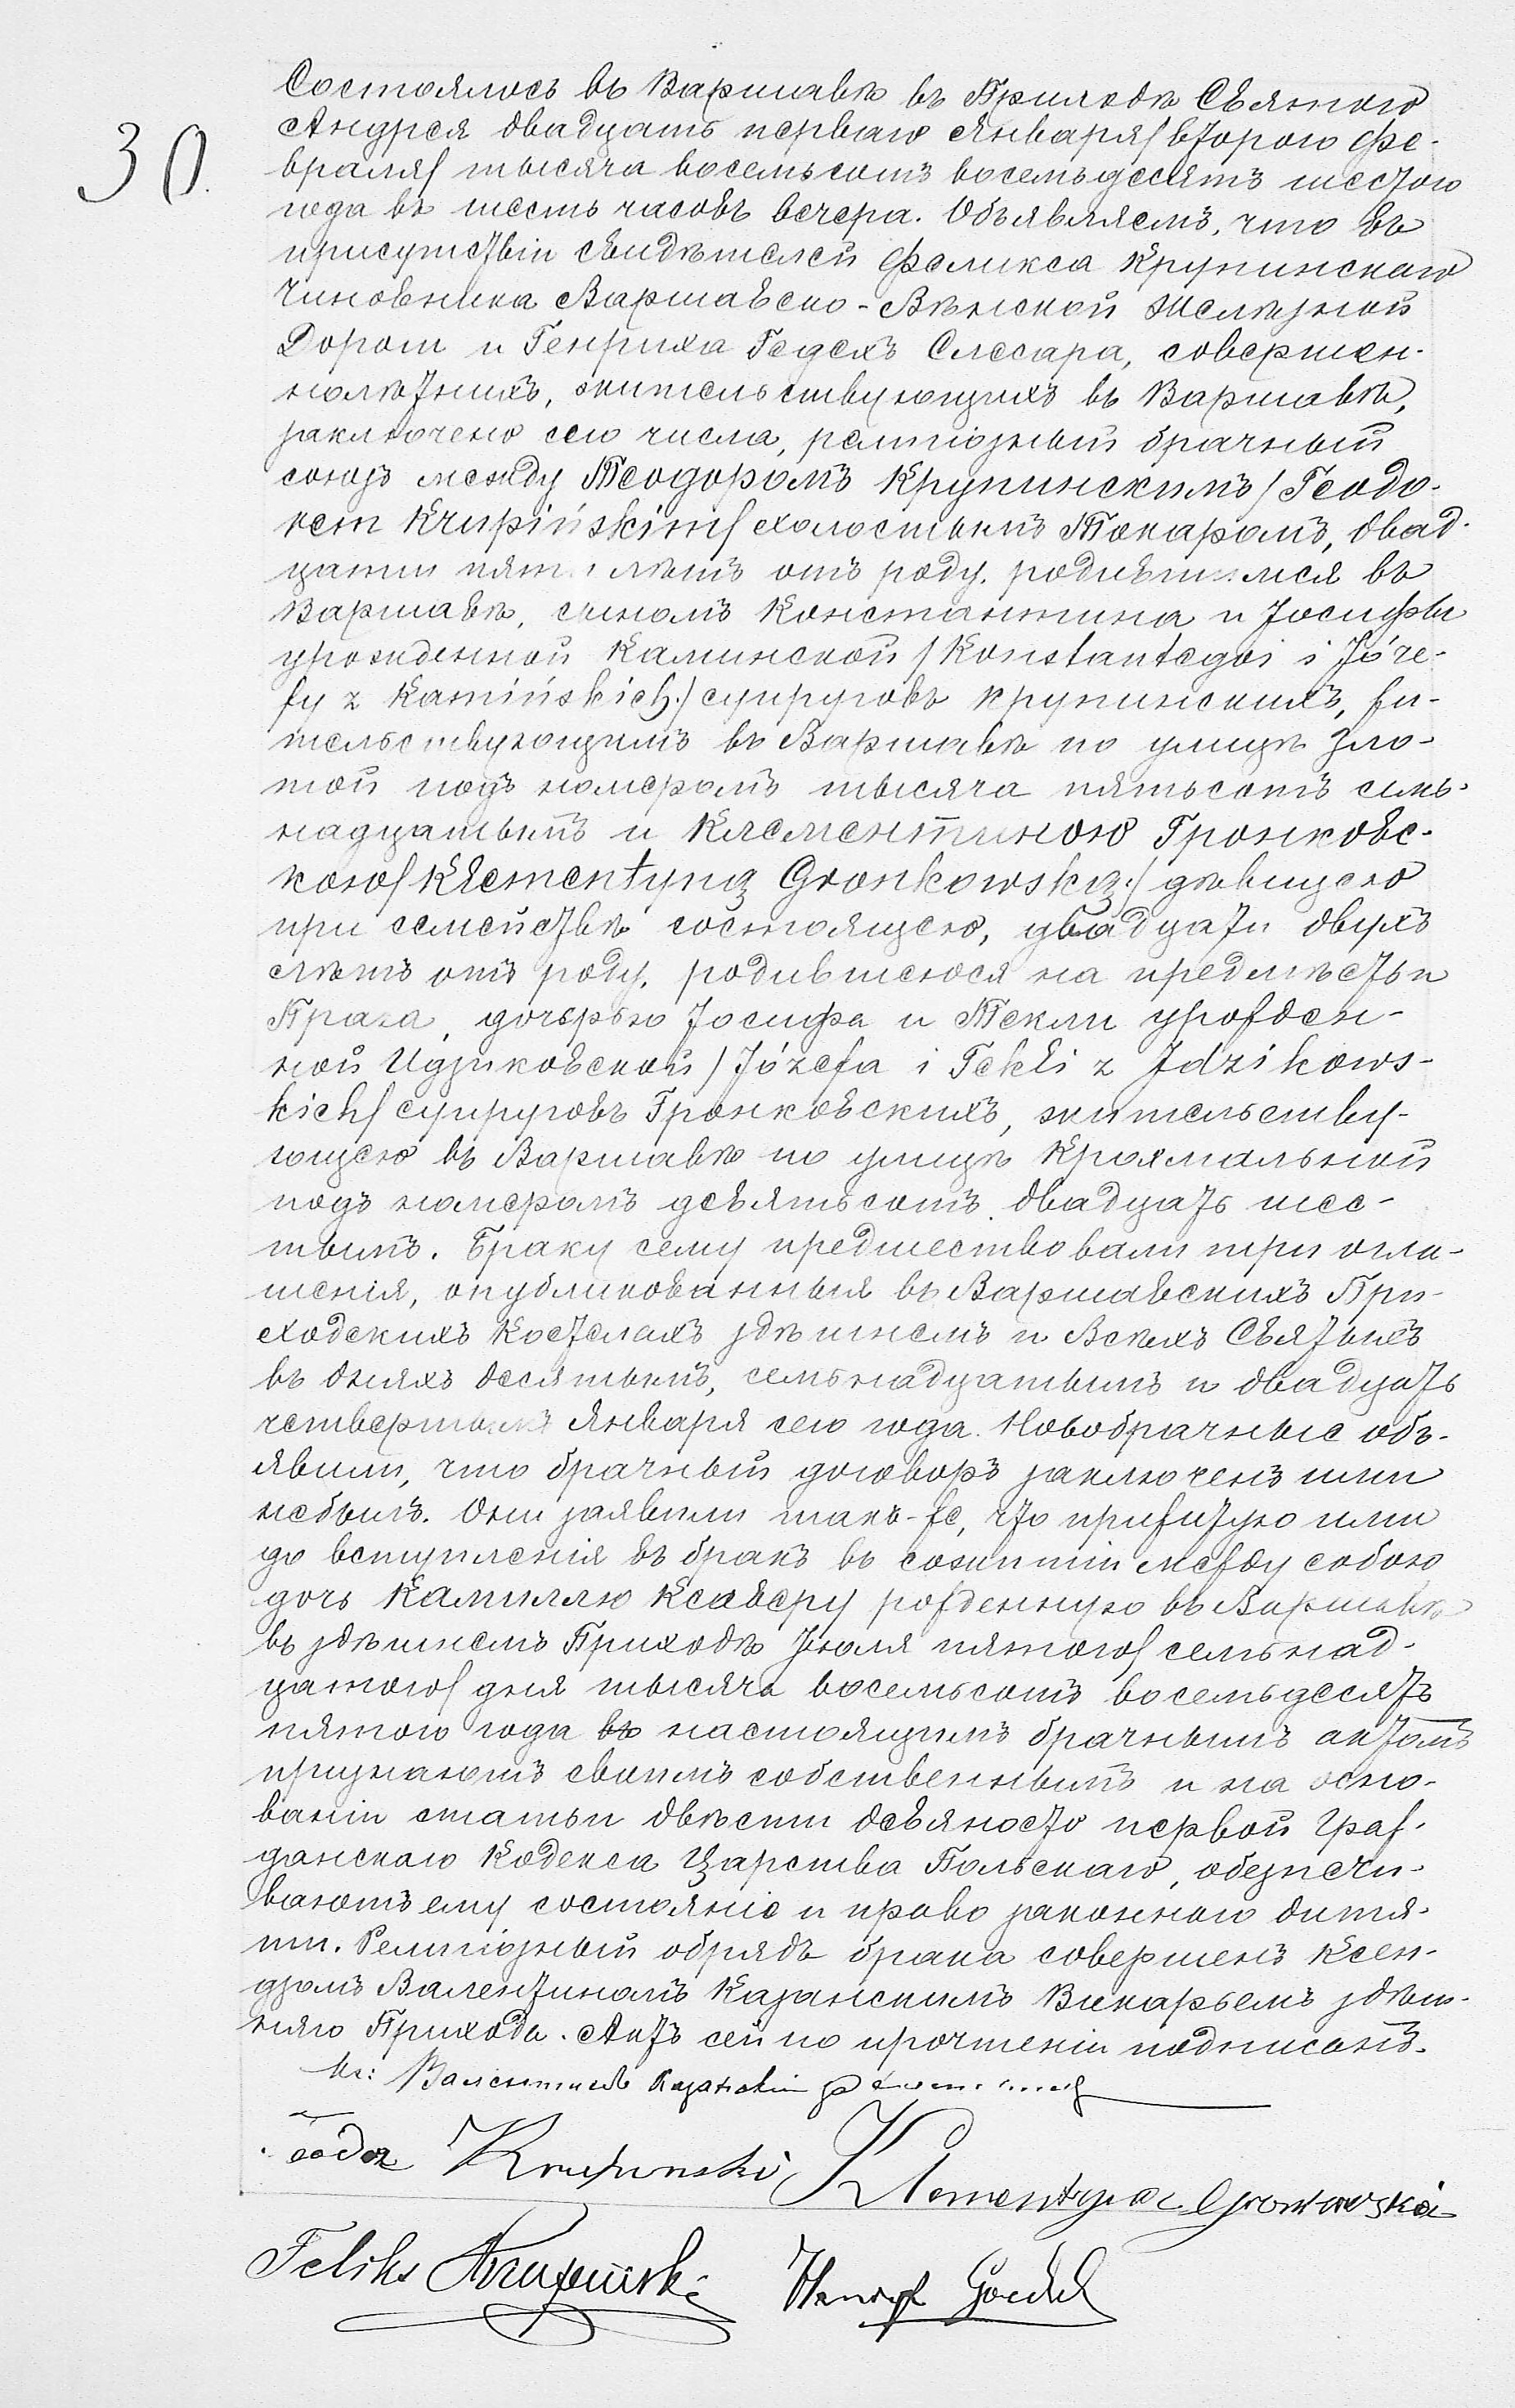 30.
Состоялось въ Варшавѣ въ Приходѣ Святого
Андрея двадцать перваго Января/второго Фе-
враля/ тысяча восемьсотъ восемьдесятъ шестого
года въ шесть часовъ вечера. Объявляемъ, что въ
присутствіи свидѣтелей Феликса Крупинскаго
Чиновника Варшавско-Вѣнской Желѣзной
Дороги и Генриха Гедель Слесара, совершен-
нолѣтнихъ, жительствующихъ въ Варшавѣ,
заключено сего числа, религіозный брачный
союзъ между Теодоромъ Крупинскимъ /Teodo-
rem Krupińskim/ холостымъ Токаромъ, двад-
цати пяти лѣтъ отъ роду, родившимся въ
Варшавѣ, сыномъ Константина и Іосифы
урожденной Каминской /Konstantego i Józe-
fy z Kamińskich./ супруговъ Крупинскихъ, жи-
тельствующимъ въ Варшавѣ по улицѣ Зло-
той подъ номеромъ тысяча пятьсотъ семь-
надцатымъ и Клементиною Гронковс-
кою/ Klementyną Gronkowską./ дѣвицею
при семействѣ состоящею, двадцати двухъ
лѣтъ отъ роду, родившеюся на предмѣстьи
Прага, дочерью Іосифа и Текли урожден-
ной Идзиковской /Józefa i Tekli z Idzikows-
kich/ супруговъ Гронковскихъ, жительству-
ющею въ Варшавѣ по улицѣ Крохмальной
подъ номеромъ девятьсотъ двадцать шес-
тымъ. Браку сему предшествовали три огла-
шенія, опубликованныя въ Варшавскихъ При-
ходскихъ Костелахъ здѣшнемъ и Всѣхъ Святыхъ
въ дняхъ десятымъ, семьнадцатымъ и двадцать
четвертымъ Января сего года. Новобрачные объ-
явили, что брачный договоръ заключенъ ими
небылъ. Они заявили такъ-же, что прижитую ими
до вступленія въ бракъ въ сожитіи между собою
дочь Камиллю Ксаверу рожденную въ Варшавѣ
въ здѣшнемъ Приходѣ Іюля пятого/ семьнад-
цатого/ дня тысяча восемьсотъ восемьдесятъ
пятого года въ настоящимъ брачнымъ актомъ
признаютъ своимъ собственнымъ и на осно-
ваніи статьи двѣсти девяносто первой Граж-
данскаго Кодекса Царства Польскаго, обезпечи-
ваютъ ему состояніе и право законнаго дитя-
ти. Религіозный обрядъ брака совершенъ Ксен-
дзомъ Валентиномъ Казанскимъ Викарьемъ здѣш-
няго Прихода. Актъ сей по прочтеніи подписанъ.
Кс: Валентинъ Казанскій
Krupinski Klementyna Gronkowska
Feliks Krupiński Henryk Goedel